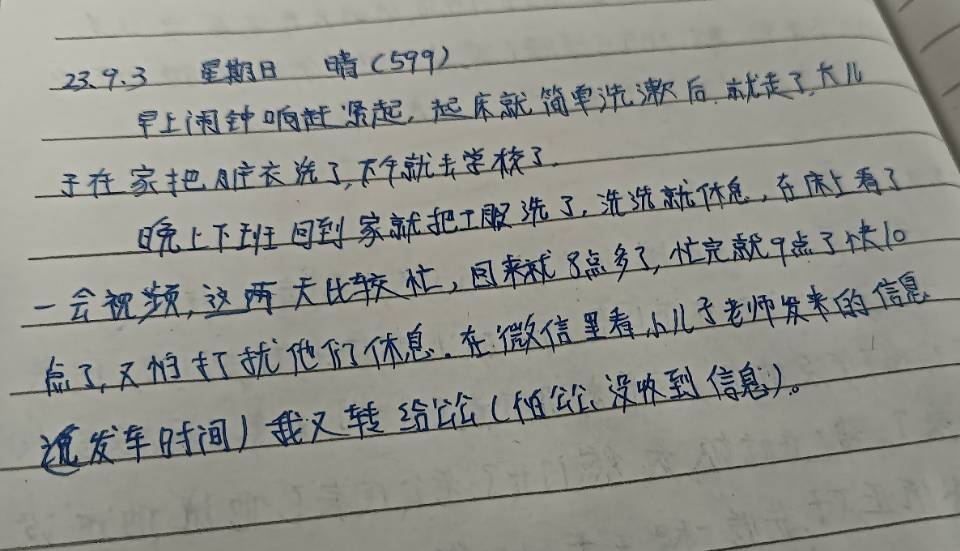 23.9.3 星期日 晴(599)
早上闹钟响赶紧起,起床就简单洗漱后,就走了,大儿
子在家把脏衣洗了,下午就去学校了.
晚上下班回到家就把工服洗了,洗洗就休息,在床上看了
一会视频,这两天比较忙,回来就8点多了,忙完就9点了快10
点了,又怕打扰他们休息.在微信里看小儿子老师发来的信息
发车时间)我又转给公公(怕公公没收到信息)。